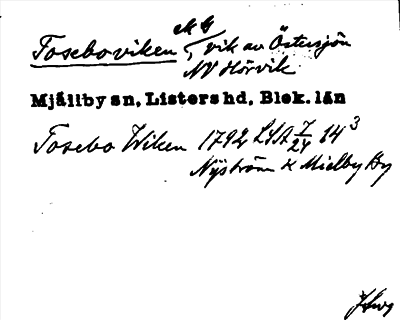 Toseboviken, vik av Östersjön
NV Hörvik
Mjällby sn, Listers hd, Blek. län
Tosebo Wiken 1792 LSA 7/24 14³
Nyström K Mielby By